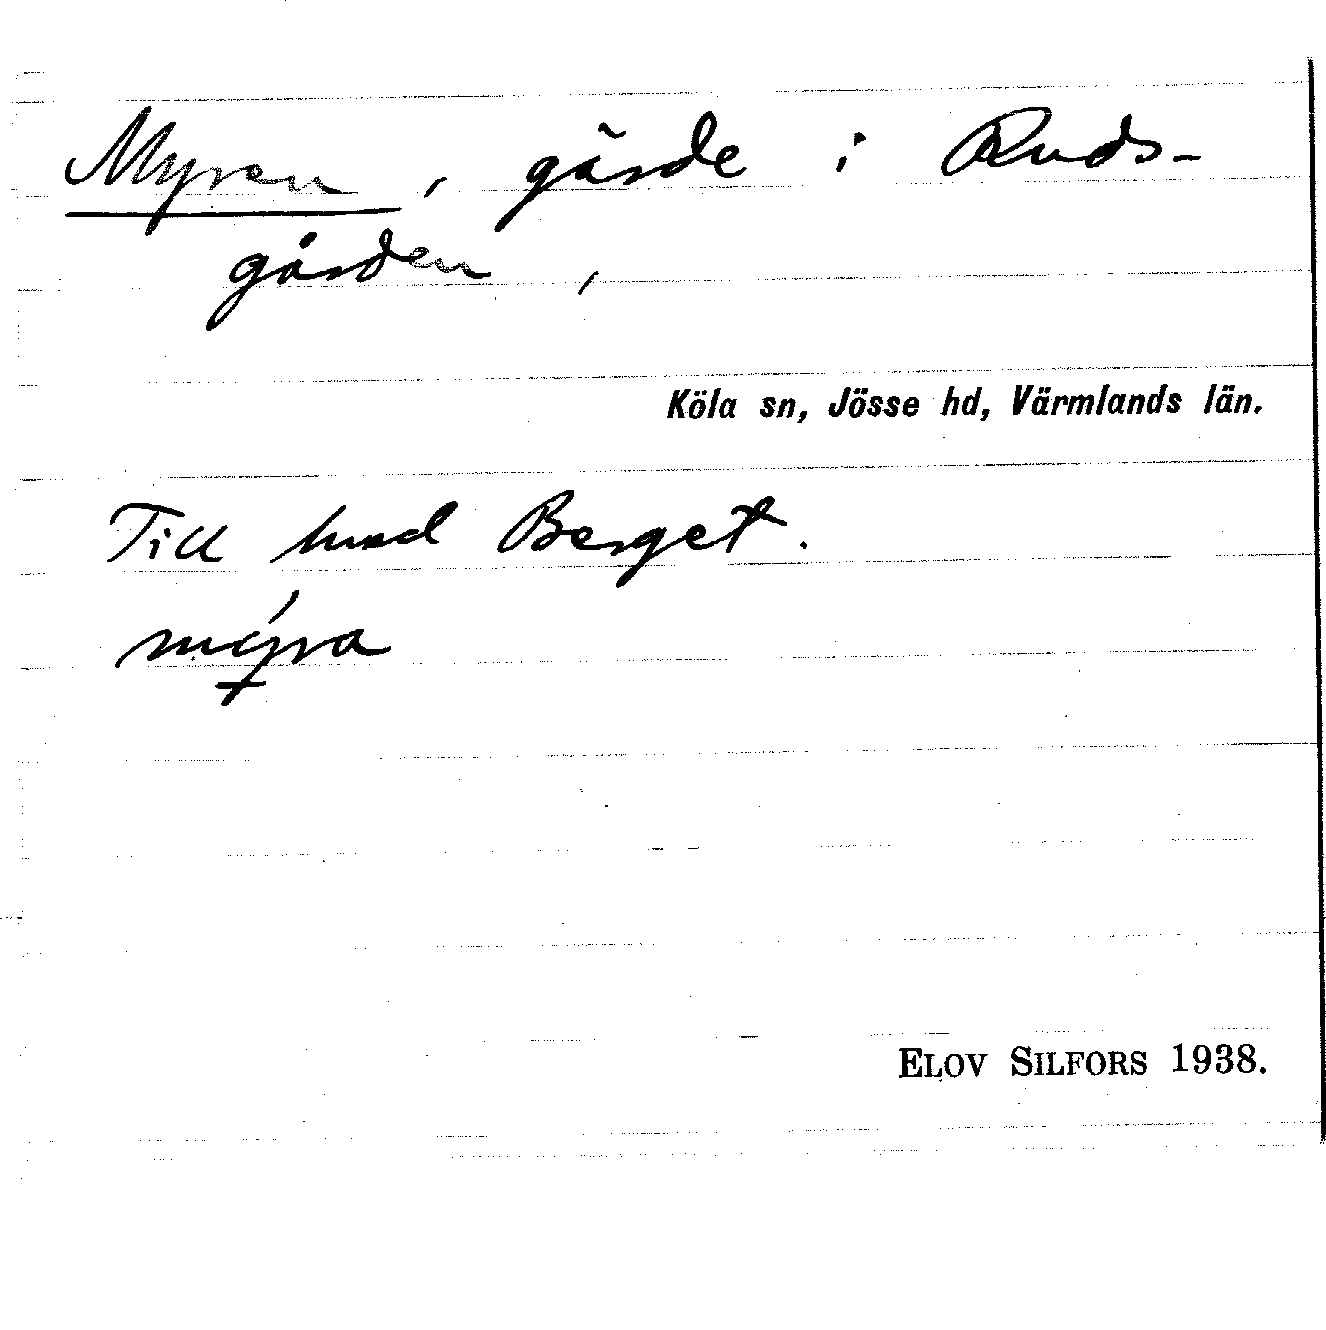 Myren, gärde i Ruds-
gården,
Köla sn, Jösse hd, Värmlands län.
Till hmd Berget.
mýra
ELOV SILFORS 1938.